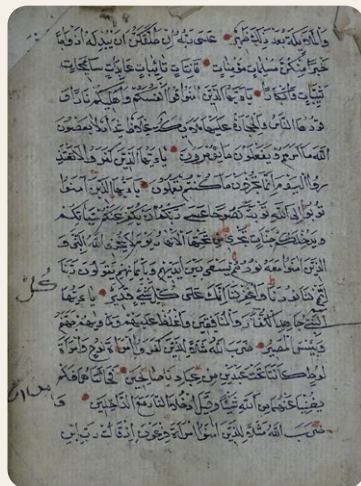 والملئكة بعد ذلك ظهير عسى ربه ان طلقكن ان يبدله ازواجا
خيرا منكن مسلمات مؤمنات قانتات تائبات عابدات سائحات
ثيبات وابكارا ياءيها الذين امنوا قوا انفسكم واهليكم نارا و
قودها الناس والحجارة عليها ملائكة غلاظ شداد لا يعصون
الله ما امرهم ويفعلون ما يؤمرون ياءيها الذين كفروا لا تعتذ
روا اليوم انما تجزون ما كنتم تعملون ياءيها الذين امنوا
توبوا الى الله توبة نصوحا عسى ربكم ان يكفر عنكم سيئاتكم
ويدخلكم جنات تجري من تحتها الانهار يوم لا يخزي الله النبي و
الذين امنوا معه نورهم يسعى بين ايديهم وبايمانهم يقولون ربنا
اتمم لنا نورنا واغفر لنا انك على كل شئ قدير ياءيها
كل
النبي جاهد الكفار والمنافقين واغلظ عليهم وماويهم جهنم
وبئس المصير ضرب الله مثلا للذين كفروا امراة نوح وامراة
لوط كانتا تحت عبدين من عبادنا صالحين فخانتاهما فلم
يغنيا عنهما من الله شيئا وقيل ادخلا النار مع الداخلين و
ضرب الله مثلا للذين امنوا امراة فرعون اذ قالت رب ابن